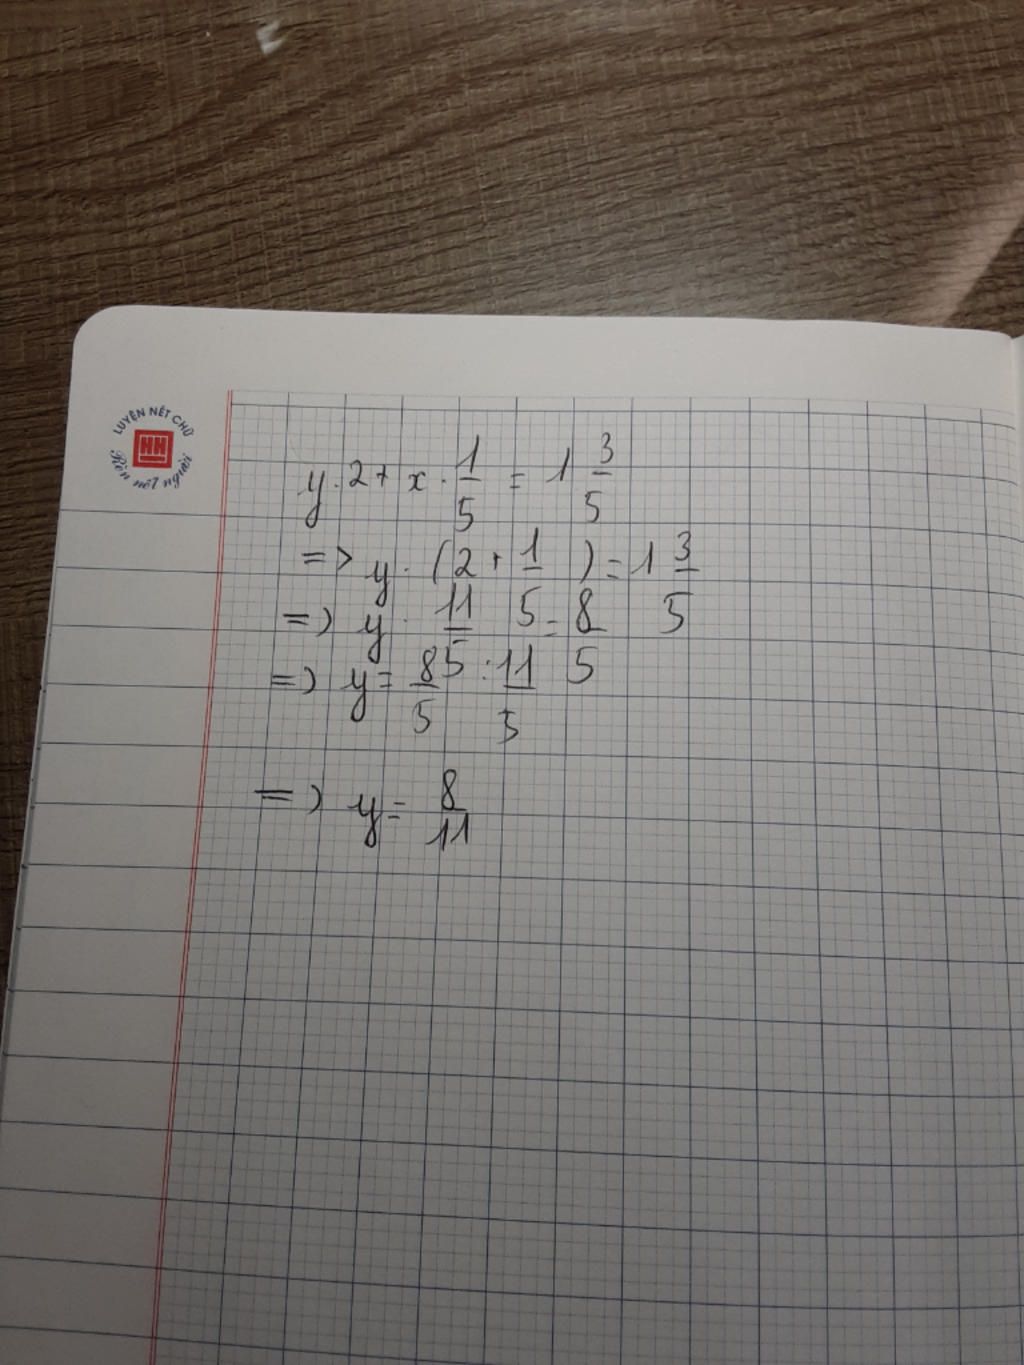 LUYỆN NÉT CHỮ
HH
Rèn nết người
y . 2 + x . 1/5 = 1 3/5
=> y . (2 + 1/5) = 1 3/5
=> y . 11/5 = 8/5
=> y = 8/5 : 11/5
=> y = 8/11